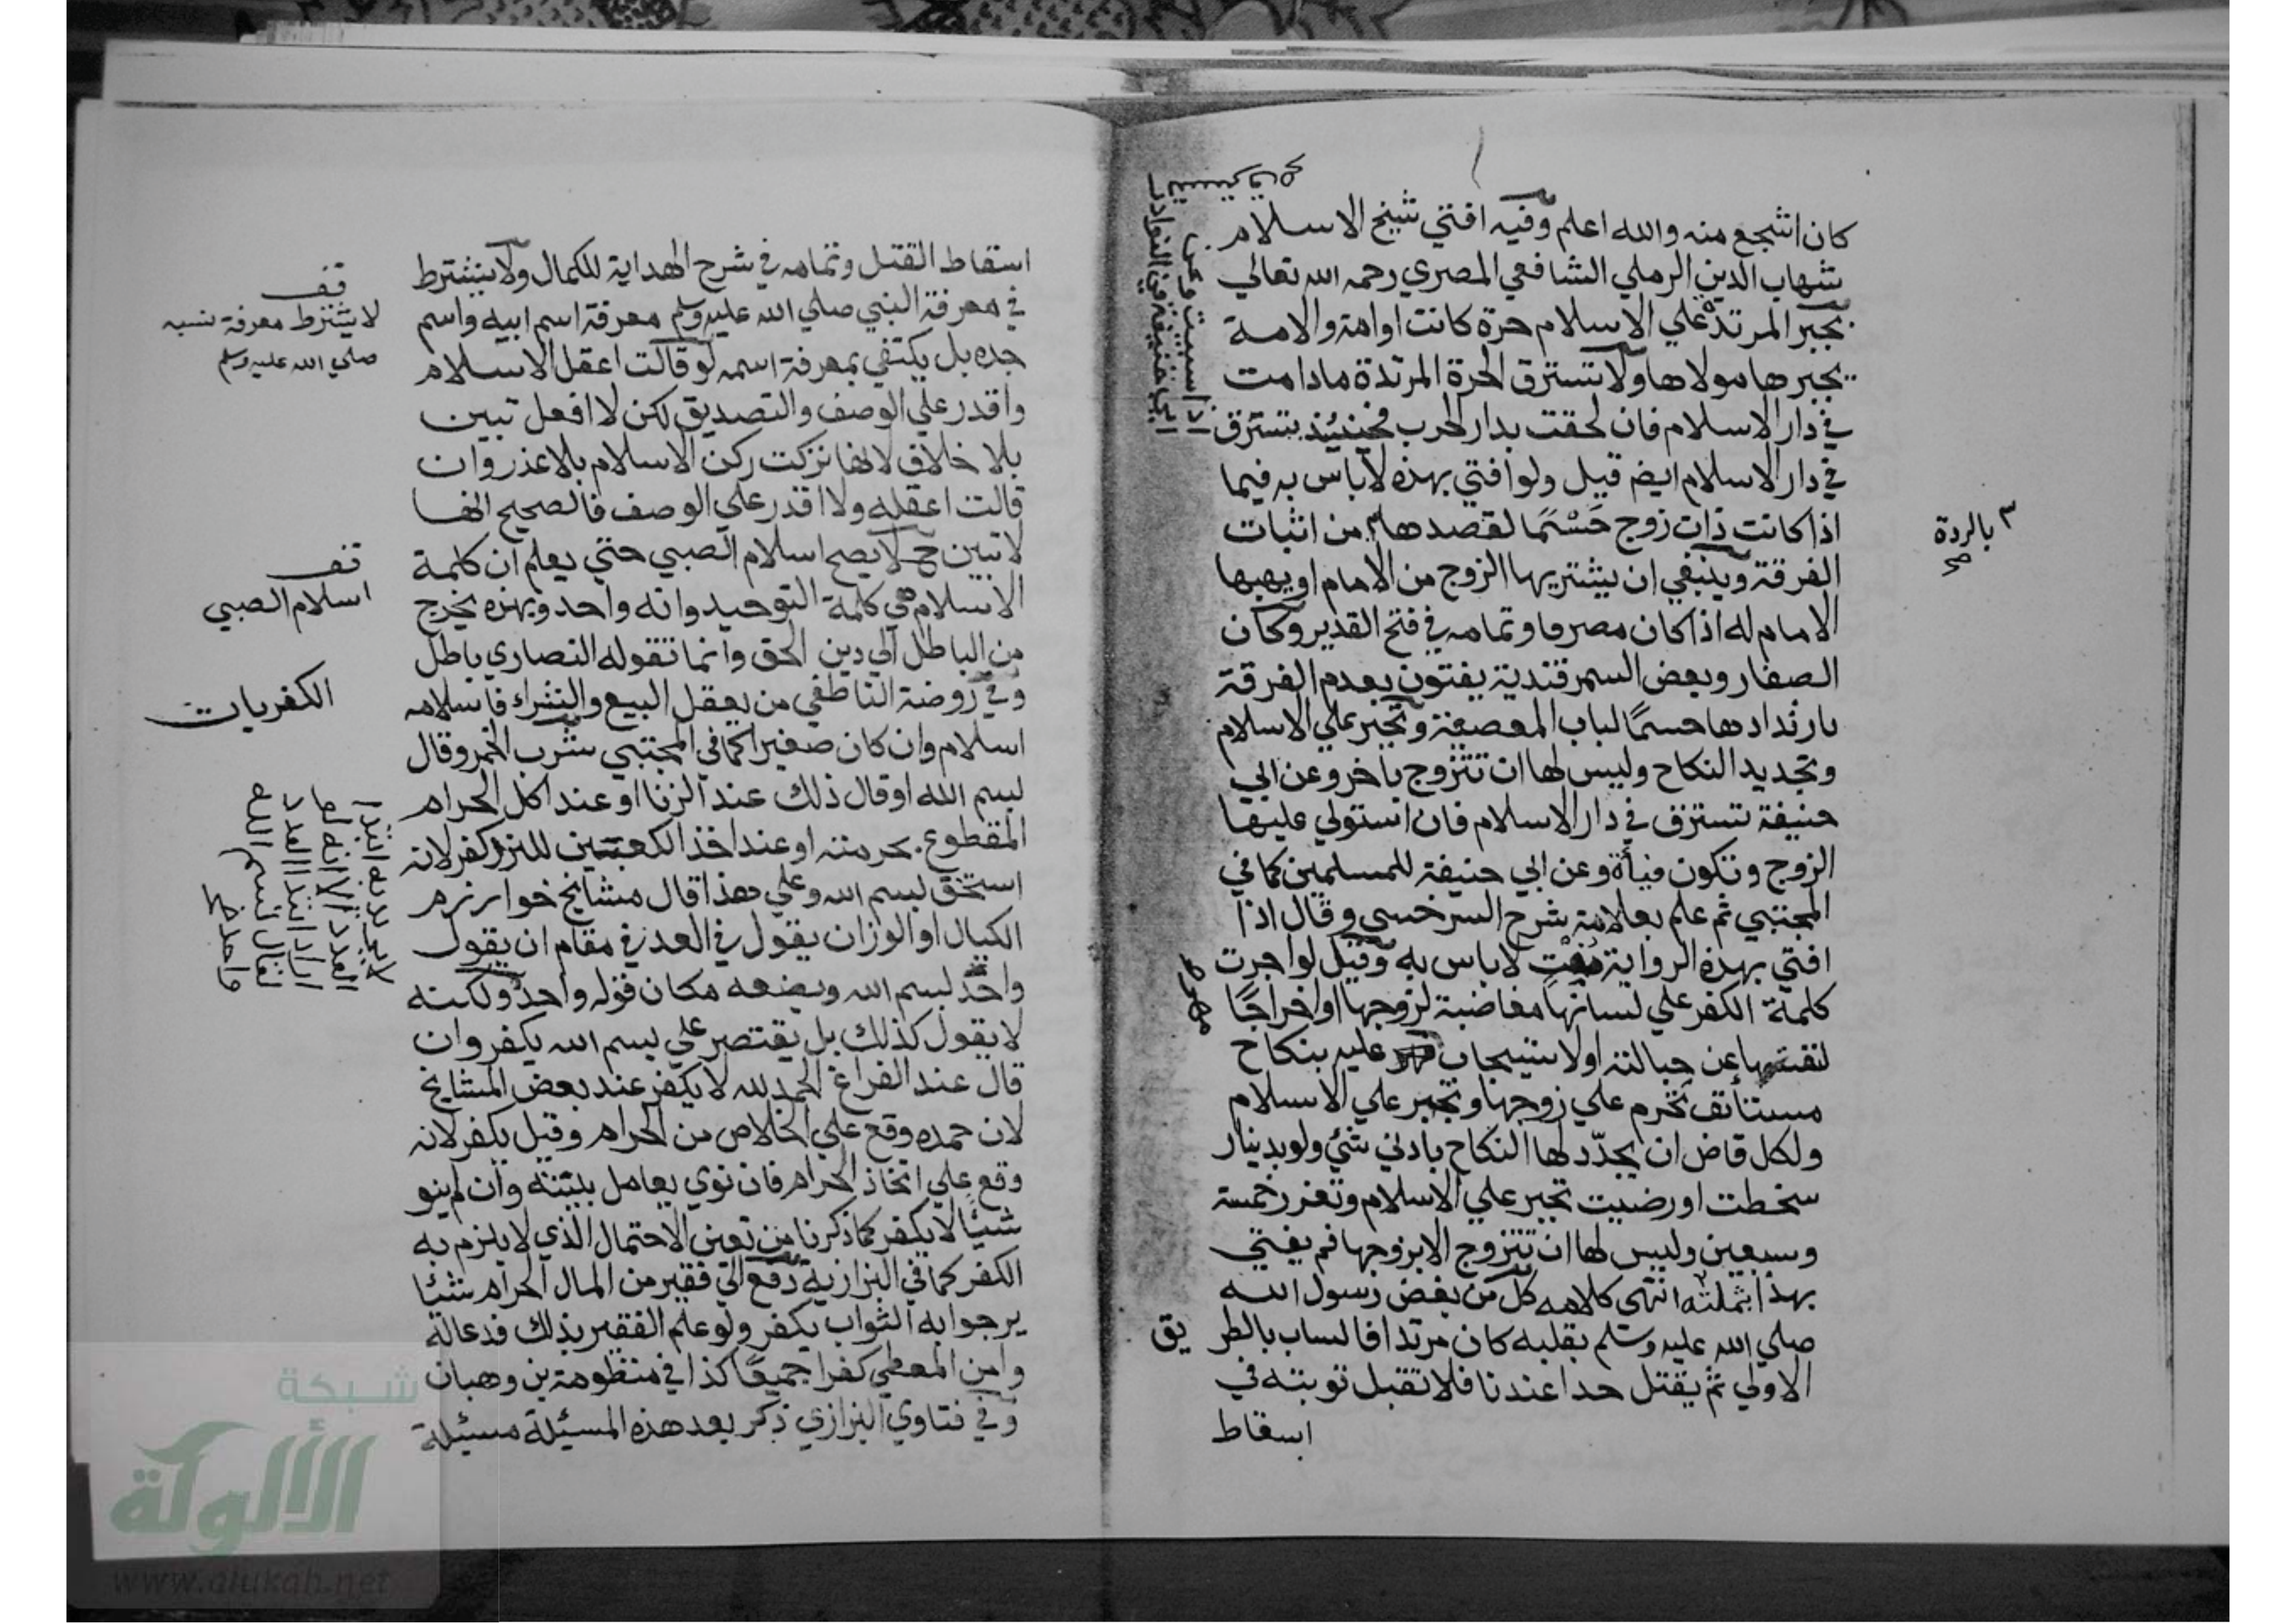 كان اشجع منه والله اعلم وفيه افتي شيخ الاسلام
شهاب الدين الرملي الشافعي المصري رحمه الله تعالي
يجبر المرتد علي الاسلام حرة كانت اوامة والامة
يجبرها مولاها ولا تسترق الحرة المرتدة مادامت
في دار الاسلام فان لحقت بدار الحرب فحينيئذ تسترق
في دار الاسلام ايضم قيل ولو افتي بهذه لا باس به فيما
اذا كانت ذات زوج حَسْمًا لقصدها من اثبات
الفرقة وينبغي ان يشتريها الزوج من الامام او يهبها
الامام له اذا كان مصرفا وتمامه في فتح القدير وكان
الصفار وبعض السمرقندية يفتون بعدم الفرقة
بارتدادها حسمًا لباب المعصية وتجبر علي الاسلام
وتجديد النكاح وليس لها ان تتزوج باخر وعن ابي
حنيفة تسترق في دار الاسلام فان استولي عليها
الزوج وتكون فيأة وعن ابي حنيفة للمسلمين كما في
المجتبي ثم علم بعلامة شرح السرخسي وقال اذا
افتي بهذه الرواية مفت لا باس به وقيل لو اجرت
كلمة الكفر علي لسانها مغاضبة لزوجها او اخراجًا
لنفسها عن حبالته او لاستيجاب عليه بنكاح
مستأنف تحرم علي زوجها وتجبر علي الاسلام
ولكل قاض ان يجدّد لها النكاح بادني شئ ولو بدينار
سخطت او رضيت تجبر علي الاسلام وتعزر خمسة
وسبعين وليس لها ان تتزوج الا بزوجها فم يفتي
بهذا بثملته انتهى كلامه كل من بغض رسول الله
صلي الله عليه وسلم بقلبه كان مرتدا فالساب بالطريق
الاولي ثم يقتل حدا عندنا فلا تقبل توبته في
اسقاط
٣ بالردة
صح
اسقاط القتل وتمامه في شرح الهداية للكمال ولا يشترط
في معرفة النبي صلي الله عليه وسلم معرفة اسم ابيه واسم
جده بل يكتفي بمعرفة اسمه لو قالت اعقل الاسلام
واقدر علي الوصف والتصديق لكن لا افعل تبين
بلا خلاف لانها تركت ركن الاسلام بلا عذر وان
قالت اعقله ولا اقدر علي الوصف فالصحيح انها
لا تبين ح لا يصح اسلام الصبي حتي يعلم ان كلمة
الاسلام هي كلمة التوحيد وانه واحد وبهذه يخرج
من الباطل الي دين الحق وانما تقوله النصاري باطل
وفي روضة الناطفي من يعقل البيع والشراء فاسلامه
اسلام وان كان صغيرا كما في المجتبي شرب الخمر وقال
بسم الله او قال ذلك عند الزنا او عند اكل الحرام
المقطوع بحرمته او عند اخذ الكعبتين للنرد كفر لانه
استخف بسم الله وعلي هذا قال مشايخ خوارزم
الكيال او الوزان يقول في العد في مقام ان يقول
واحد بسم الله ويضعه مكان قوله واحد ولكنه
لا يقول كذلك بل يقتصر علي بسم الله يكفر وان
قال عند الفراغ الحمد لله لا يكفر عند بعض المشايخ
لان حمده وقع علي الخلاص من الحرام وقيل يكفر لانه
وقع علي اتخاذ الحرام فان نوي يعامل بنيته وان لم ينو
شيئا لا يكفر كما ذكرنا من تعين الاحتمال الذي لا يلزم به
الكفر كما في البزازية دفع الي فقير من المال الحرام شيئا
يرجوا به الثواب يكفر ولو علم الفقير بذلك فدعا له
وامن المعطي كفرا جميعًا كذا في منظومة بن وهبان
وفي فتاوي البزازي ذكر بعد هذه المسيئلة مسيئلة
قف
لا يشترط معرفة نسبه
صلي الله عليه وسلم
قف
اسلام الصبي
الكفريات
شبكة
الألوكة
www.alukah.net